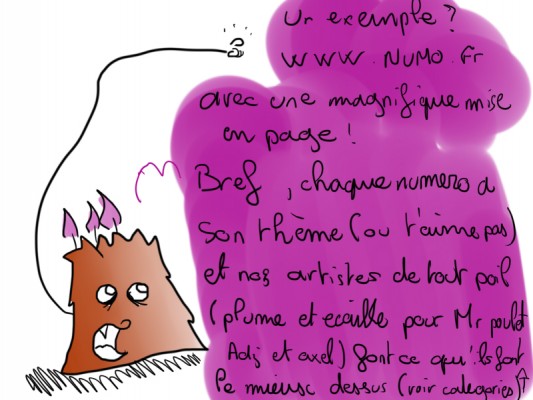 un exemple ?
www.NuMo.fr
avec une magnifique mise
en page !
Bref, chaque numero a
son thème (ou t'aime pas)
et nos artistes de tout poil
(plume et ecaille pour Mr poulet
Adij et axel) font ce qu'ils font
le mieux dessus (voir categories)↑